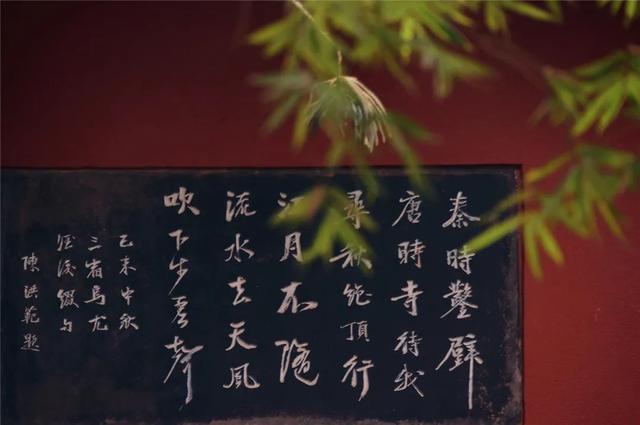 秦時鑿壁
唐時寺待我
尋秋絕頂行
江月不隨
流水去天風
吹下步虛聲
己未中秋
三宿烏尤
酒後綴句
陳洪範題